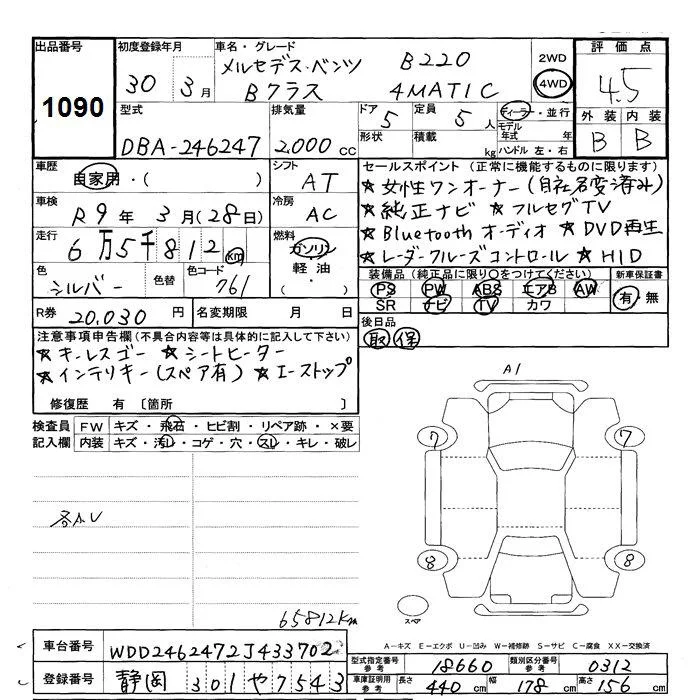 出品番号
1090
初度登録年月
30 年 3 月
車名・グレード
メルセデス・ベンツ B220
Bクラス 4MATIC
2WD
4WD
評価点
4.5
外装 内装
B B
型式
DBA-246247
排気量
2,000 cc
ドア
5
定員
5 人
形状
積載
kg
ディーラー・並行
モデル年式 年
ハンドル 左・右
車歴
自家用・( )
シフト
AT
車検
R9年 3月(28日)
冷房
AC
走行
6万5千812 km
燃料
ガソリン
軽油・
色
シルバー
色替
色コード
761
セールスポイント (正常に機能するものに限ります)
★女性ワンオーナー(自社名変済み)
★純正ナビ ★フルセグTV
★Bluetoothオーディオ ★DVD再生
★レーダークルーズコントロール ★HID
装備品(純正品に限り〇をつけてください)
PS PW ABS エアB AW
SR ナビ TV カワ
新車保証書
有・無
R券 20,030 円
名変期限 月 日
後日品
取 保
注意事項申告欄(不具合内容等は具体的に記入して下さい)
★キーレスゴー ★シートヒーター
★インテリキー(スペア有) ★エーストップ
修復歴 有 〔箇所 〕
検査員記入欄
FW キズ・飛石・ヒビ割・リペア跡・×要
内装 キズ・汚れ・コゲ・穴・スレ・キレ・破レ
各AU
65812Km
A1
7
7
8
8
スペア
A-キズ E-エクボ U-凹み W-補修跡 S-サビ C-腐食 XX-交換済
車台番号 WDD2462472J433702
登録番号 静岡 301 や 7543
型式指定番号 参考 18660
類別区分番号 参考 0312
車庫証明用 参考 長さ 440 cm 幅 178 cm 高さ 156 cm